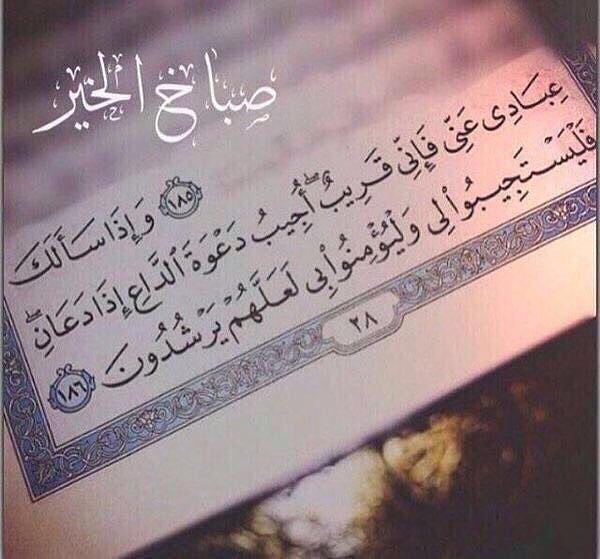 صباح الخير
﴿١٨٥﴾ وَإِذَا سَأَلَكَ
عِبَادِى عَنِّى فَإِنِّى قَرِيبٌ أُجِيبُ دَعْوَةَ ٱلدَّاعِ إِذَا دَعَانِ
فَلْيَسْتَجِيبُوا۟ لِى وَلْيُؤْمِنُوا۟ بِى لَعَلَّهُمْ يَرْشُدُونَ ﴿١٨٦﴾
٢٨